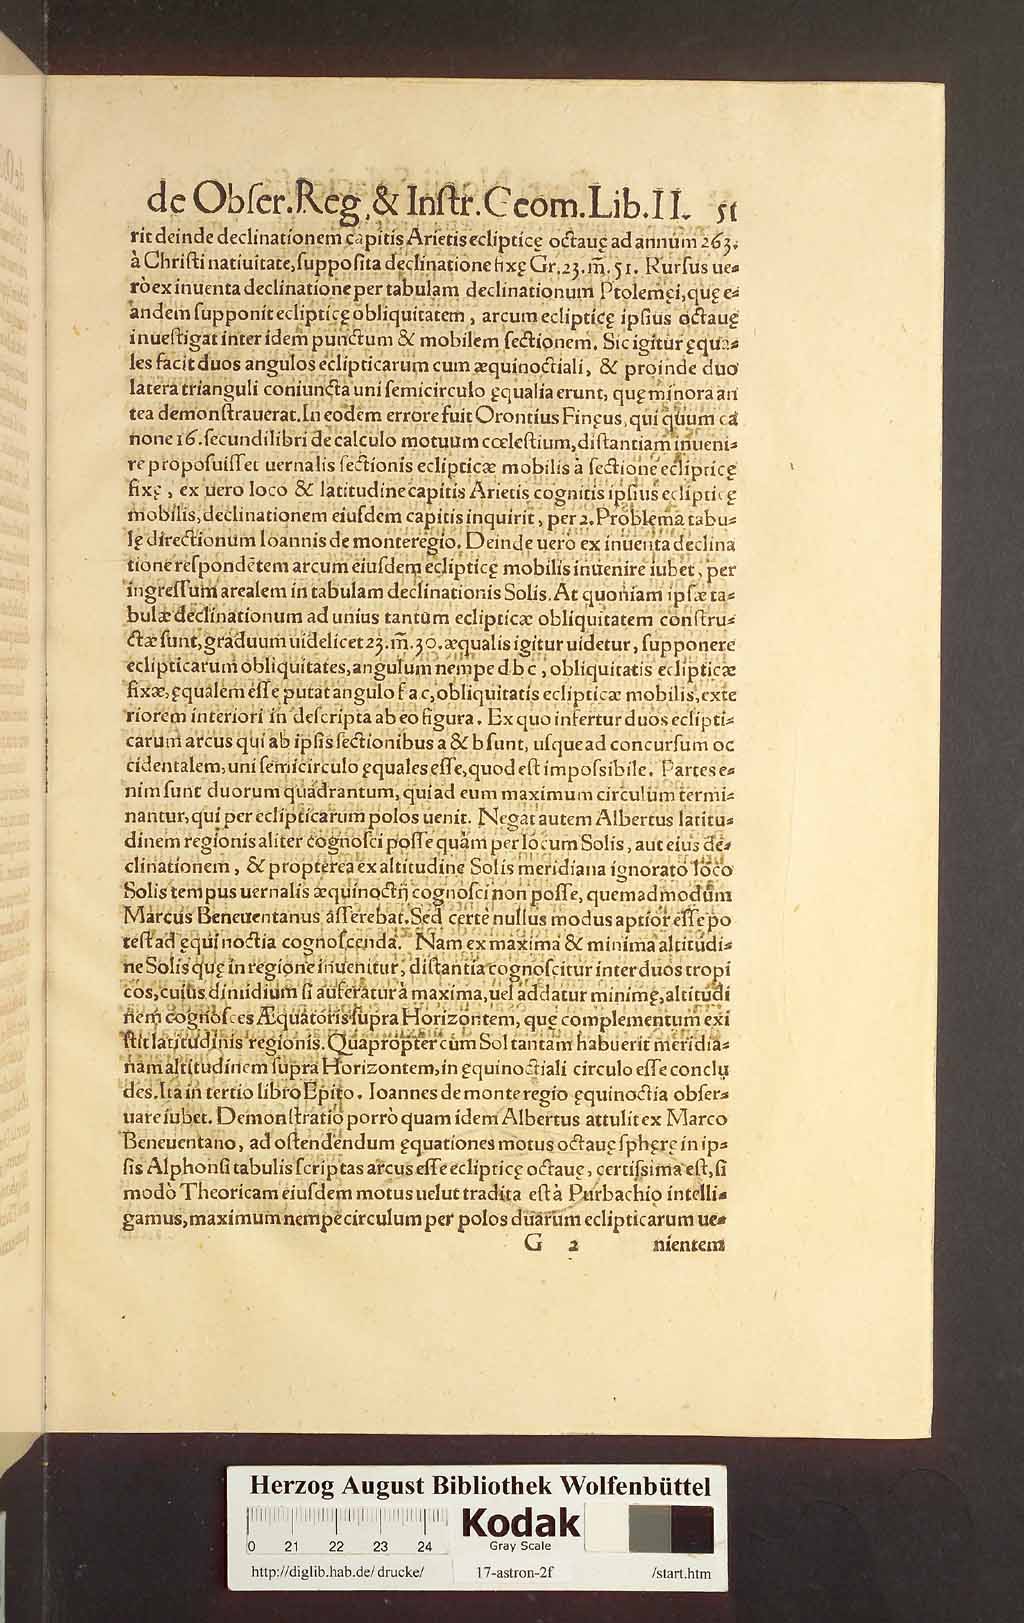 de Obſer.Reg.& Inſtr.Geom.Lib.II. 51
rit deinde declinationem capitis Arietis eclipticę octauę ad annum 263.
à Chriſti natiuitate, ſuppoſita declinatione fixę Gr.23.m̃.51. Rurſus ue-
rò ex inuenta declinatione per tabulam declinationum Ptolemęi, quę e-
andem ſupponit eclipticę obliquitatem, arcum eclipticę ipſius octauę
inueſtigat inter idem punctum & mobilem ſectionem. Sic igitur ęqua-
les facit duos angulos eclipticarum cum æquinoctiali, & proinde duo
latera trianguli coniuncta uni ſemicirculo ęqualia erunt, quę minora an
tea demonſtrauerat. In eodem errore fuit Orontius Finęus, qui quum ca
none 16. ſecundi libri de calculo motuum cœleſtium, diſtantiam inueni-
re propoſuiſſet uernalis ſectionis eclipticæ mobilis à ſectione eclipticę
fixę, ex uero loco & latitudine capitis Arietis cognitis ipſius eclipticę
mobilis, declinationem eiuſdem capitis inquirit, per 2. Problema tabu-
lę directionum Ioannis de monteregio. Deinde uerò ex inuenta declina
tione reſpondẽtem arcum eiuſdem eclipticę mobilis inuenire iubet, per
ingreſſum arealem in tabulam declinationis Solis. At quoniam ipſæ ta-
bulæ declinationum ad unius tantùm eclipticæ obliquitatem conſtru-
ctæ ſunt, graduum uidelicet 23.m̃.30. æqualis igitur uidetur, ſupponere
eclipticarum obliquitates, angulum nempe d b c, obliquitatis eclipticæ
fixæ, ęqualem eſſe putat angulo f a c, obliquitatis eclipticæ mobilis, exte
riorem interiori in deſcripta ab eo figura. Ex quo infertur duos eclipti-
carum arcus qui ab ipſis ſectionibus a & b ſunt, uſque ad concurſum oc
cidentalem, uni ſemicirculo ęquales eſſe, quod eſt impoſsibile. Partes e-
nim ſunt duorum quadrantum, qui ad eum maximum circulum termi-
nantur, qui per eclipticarum polos uenit. Negat autem Albertus latitu-
dinem regionis aliter cognoſci poſſe quàm per locum Solis, aut eius de-
clinationem, & propterea ex altitudine Solis meridiana ignorato loco
Solis tempus uernalis æquinoctij cognoſci non poſſe, quemadmodum
Marcus Beneuentanus aſſerebat. Sed certè nullus modus aptior eſſe po
teſt ad ęquinoctia cognoſcenda. Nam ex maxima & minima altitudi-
ne Solis quę in regione inuenitur, diſtantia cognoſcitur inter duos tropi
cos, cuius dimidium ſi auferatur à maxima, uel addatur minimę, altitudi
nem cognoſces Æquatoris ſupra Horizontem, quę complementum exi
ſtit latitudinis regionis. Quapropter cùm Sol tantam habuerit meridia-
nam altitudinem ſupra Horizontem, in ęquinoctiali circulo eſſe conclu
des. Ita in tertio libro Epito. Ioannes de monte regio ęquinoctia obſer-
uare iubet. Demonſtratio porrò quam idem Albertus attulit ex Marco
Beneuentano, ad oſtendendum ęquationes motus octauę ſphęrę in ip-
ſis Alphonſi tabulis ſcriptas arcus eſſe eclipticę octauę, certiſsima eſt, ſi
modò Theoricam eiuſdem motus uelut tradita eſt à Purbachio intelli-
gamus, maximum nempe circulum per polos duarum eclipticarum ue-
G 2 nientem
Herzog August Bibliothek Wolfenbüttel
Kodak
Gray Scale
0 21 22 23 24
http://diglib.hab.de/drucke/ 17-astron-2f /start.htm